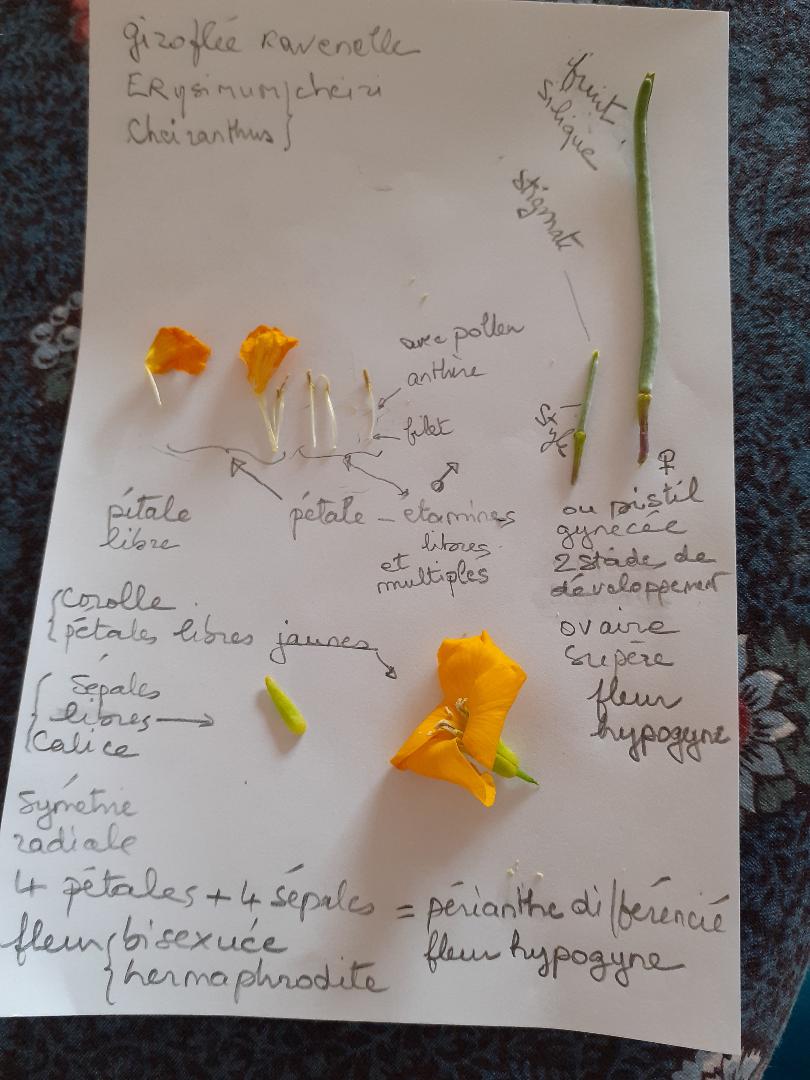 giroflée ravenelle
ERysimum}cheiri
Cheiranthus}
fruit
silique
stigmate
avec pollen
anthère
filet
style
♀
pétale
libre
pétale - etamines
libres
et
multiples
ou pistil
gynécée
2 stade de
développement
ovaire
supère
fleur
hypogyne
{corolle
{pétales libres jaunes
{sépales
{libres
{calice
Symétrie
radiale
4 pétales + 4 sépales = périanthe différencié
fleur{bisexuée
{hermaphrodite
fleur hypogyne